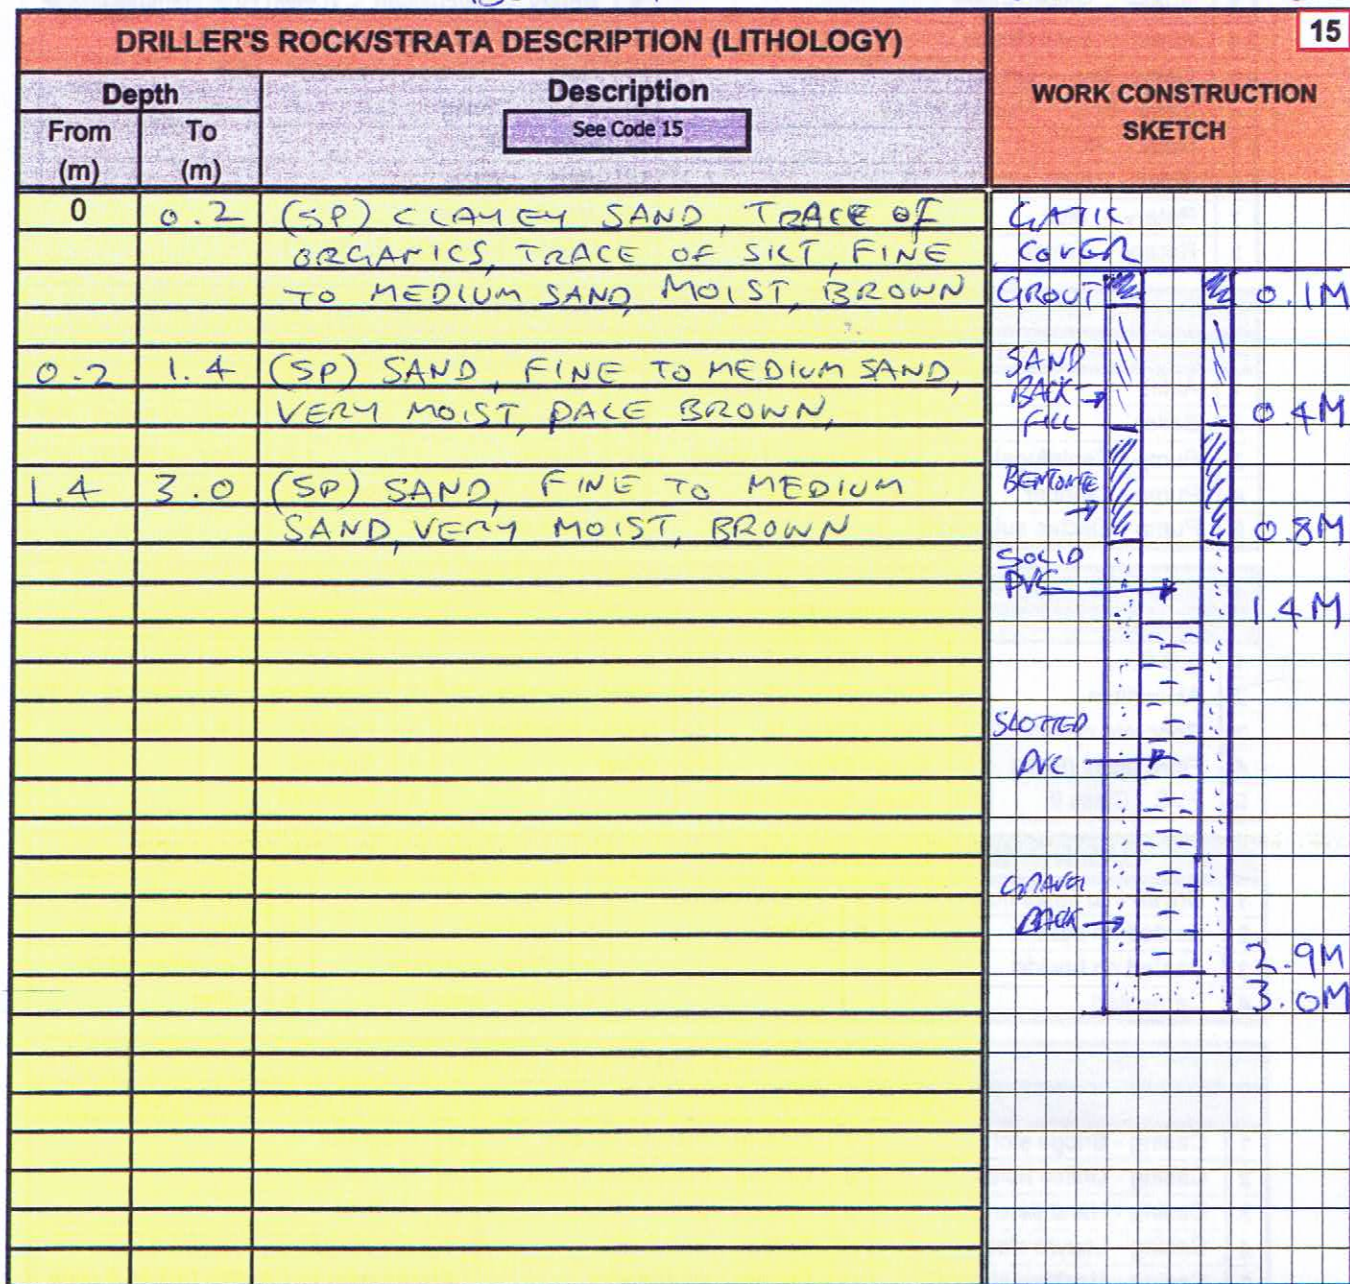 DRILLER'S ROCK/STRATA DESCRIPTION (LITHOLOGY)
15
WORK CONSTRUCTION
SKETCH
Depth
Description
From
(m)
To
(m)
See Code 15
0 0.2 (SP) CLAYEY SAND, TRACE OF
ORGANICS, TRACE OF SILT, FINE
TO MEDIUM SAND, MOIST, BROWN
0.2 1.4 (SP) SAND, FINE TO MEDIUM SAND,
VERY MOIST, PALE BROWN,
1.4 3.0 (SP) SAND, FINE TO MEDIUM
SAND, VERY MOIST, BROWN
GATIC
COVER
GROUT
0.1M
SAND
BACK
FILL
0.4M
BENTONITE
0.8M
SOLID
PVC
1.4M
SLOTTED
PVC
GRAVEL
PACK
2.9M
3.0M